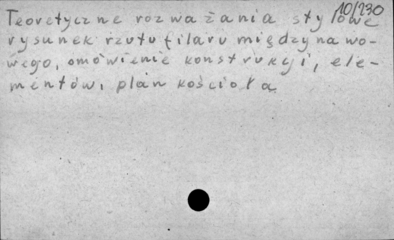 10/230
Teoretyczne rozważania stylowe
rysunek rzutu filaru międzynawo-
wego, omówienie konstrukcji, ele-
mentów, plan kościoła